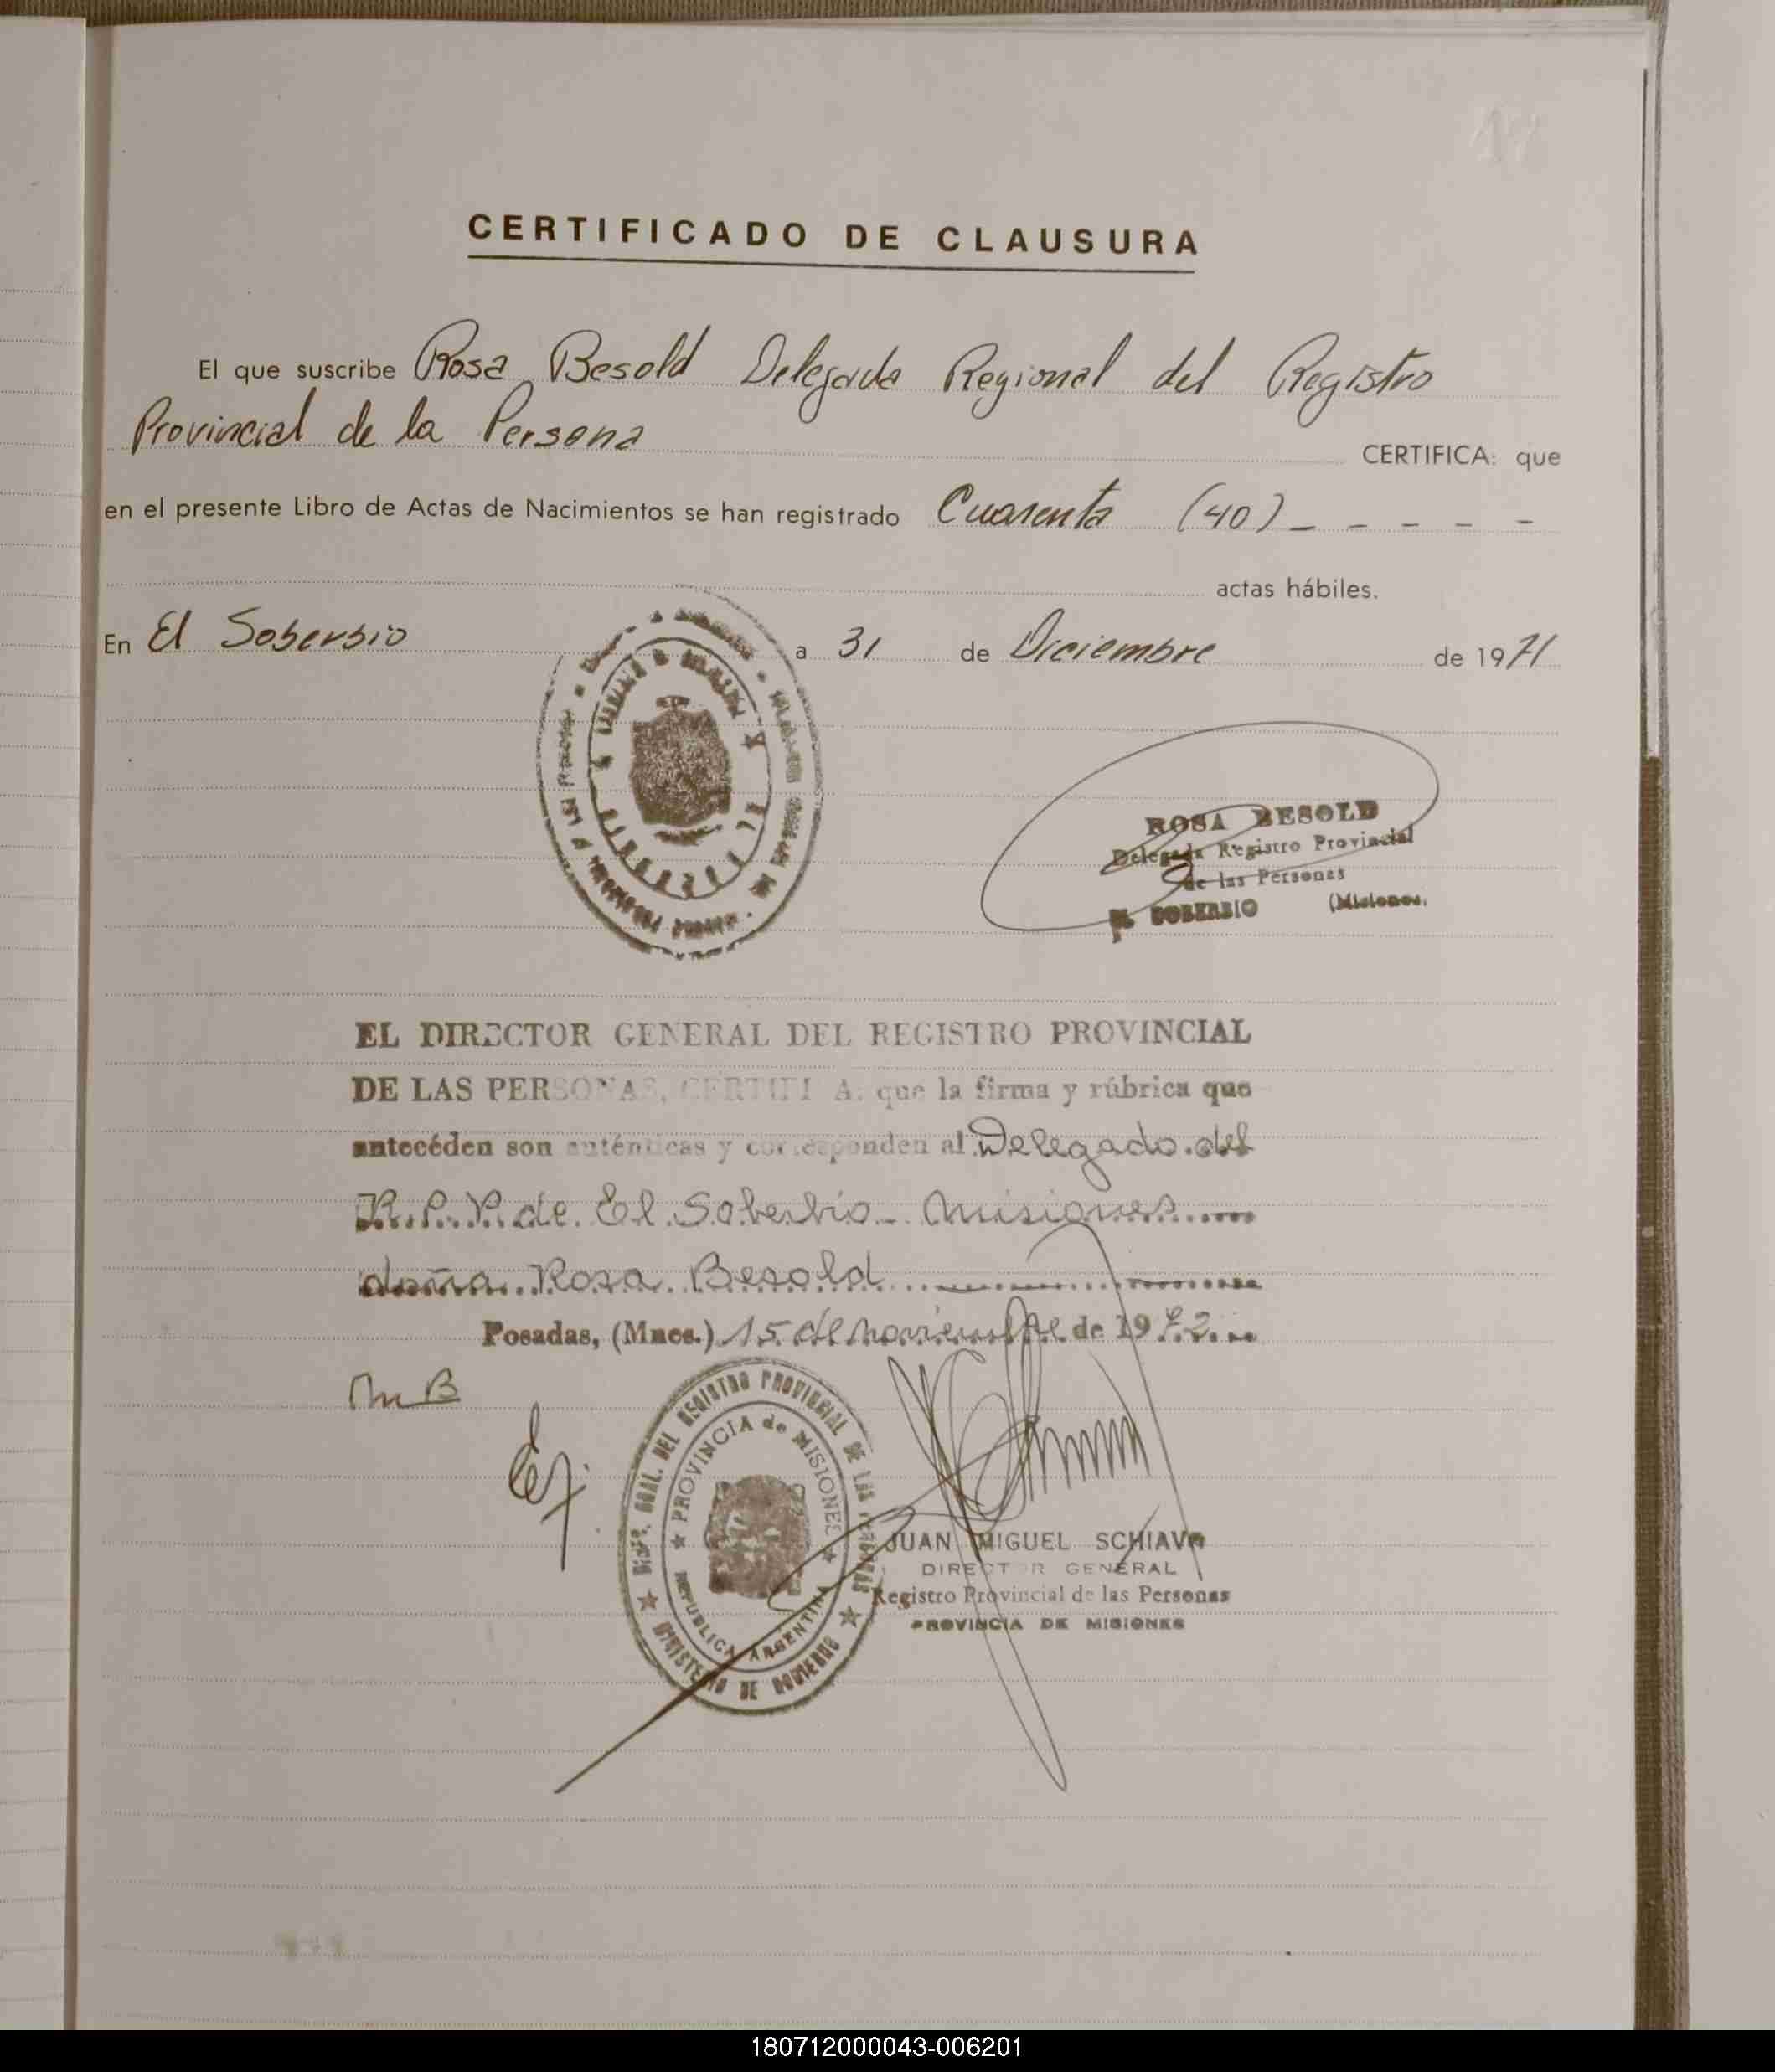 CERTIFICADO DE CLAUSURA
El que suscribe Rosa Besold Delegada Regional del Registro
Provincial de la Persona
CERTIFICA: que
en el presente Libro de Actas de Nacimientos se han registrado Cuarenta (40) _ - - - -
actas hábiles.
En El Soberbio a 31 de Diciembre de 1971
ROSA BESOLD
Delegada Registro Provincial
de las Personas
EL SOBERBIO (Misiones)
EL DIRECTOR GENERAL DEL REGISTRO PROVINCIAL
DE LAS PERSONAS, CERTIFI A: que la firma y rúbrica que
antecéden son auténticas y corresponden al Delegado del
R.P.P. de El Soberbio - Misiones
doña Rosa Besold
Posadas, (Mnes.) 15 de noviembre de 1972
DIRECC. GRAL. DEL REGISTRO PROVINCIAL DE LAS PERSONAS
PROVINCIA de MISIONES
REPUBLICA ARGENTINA
MINISTERIO DE GOBIERNO
JUAN MIGUEL SCHIAVO
DIRECTOR GENERAL
Registro Provincial de las Personas
PROVINCIA DE MISIONES
180712000043-006201